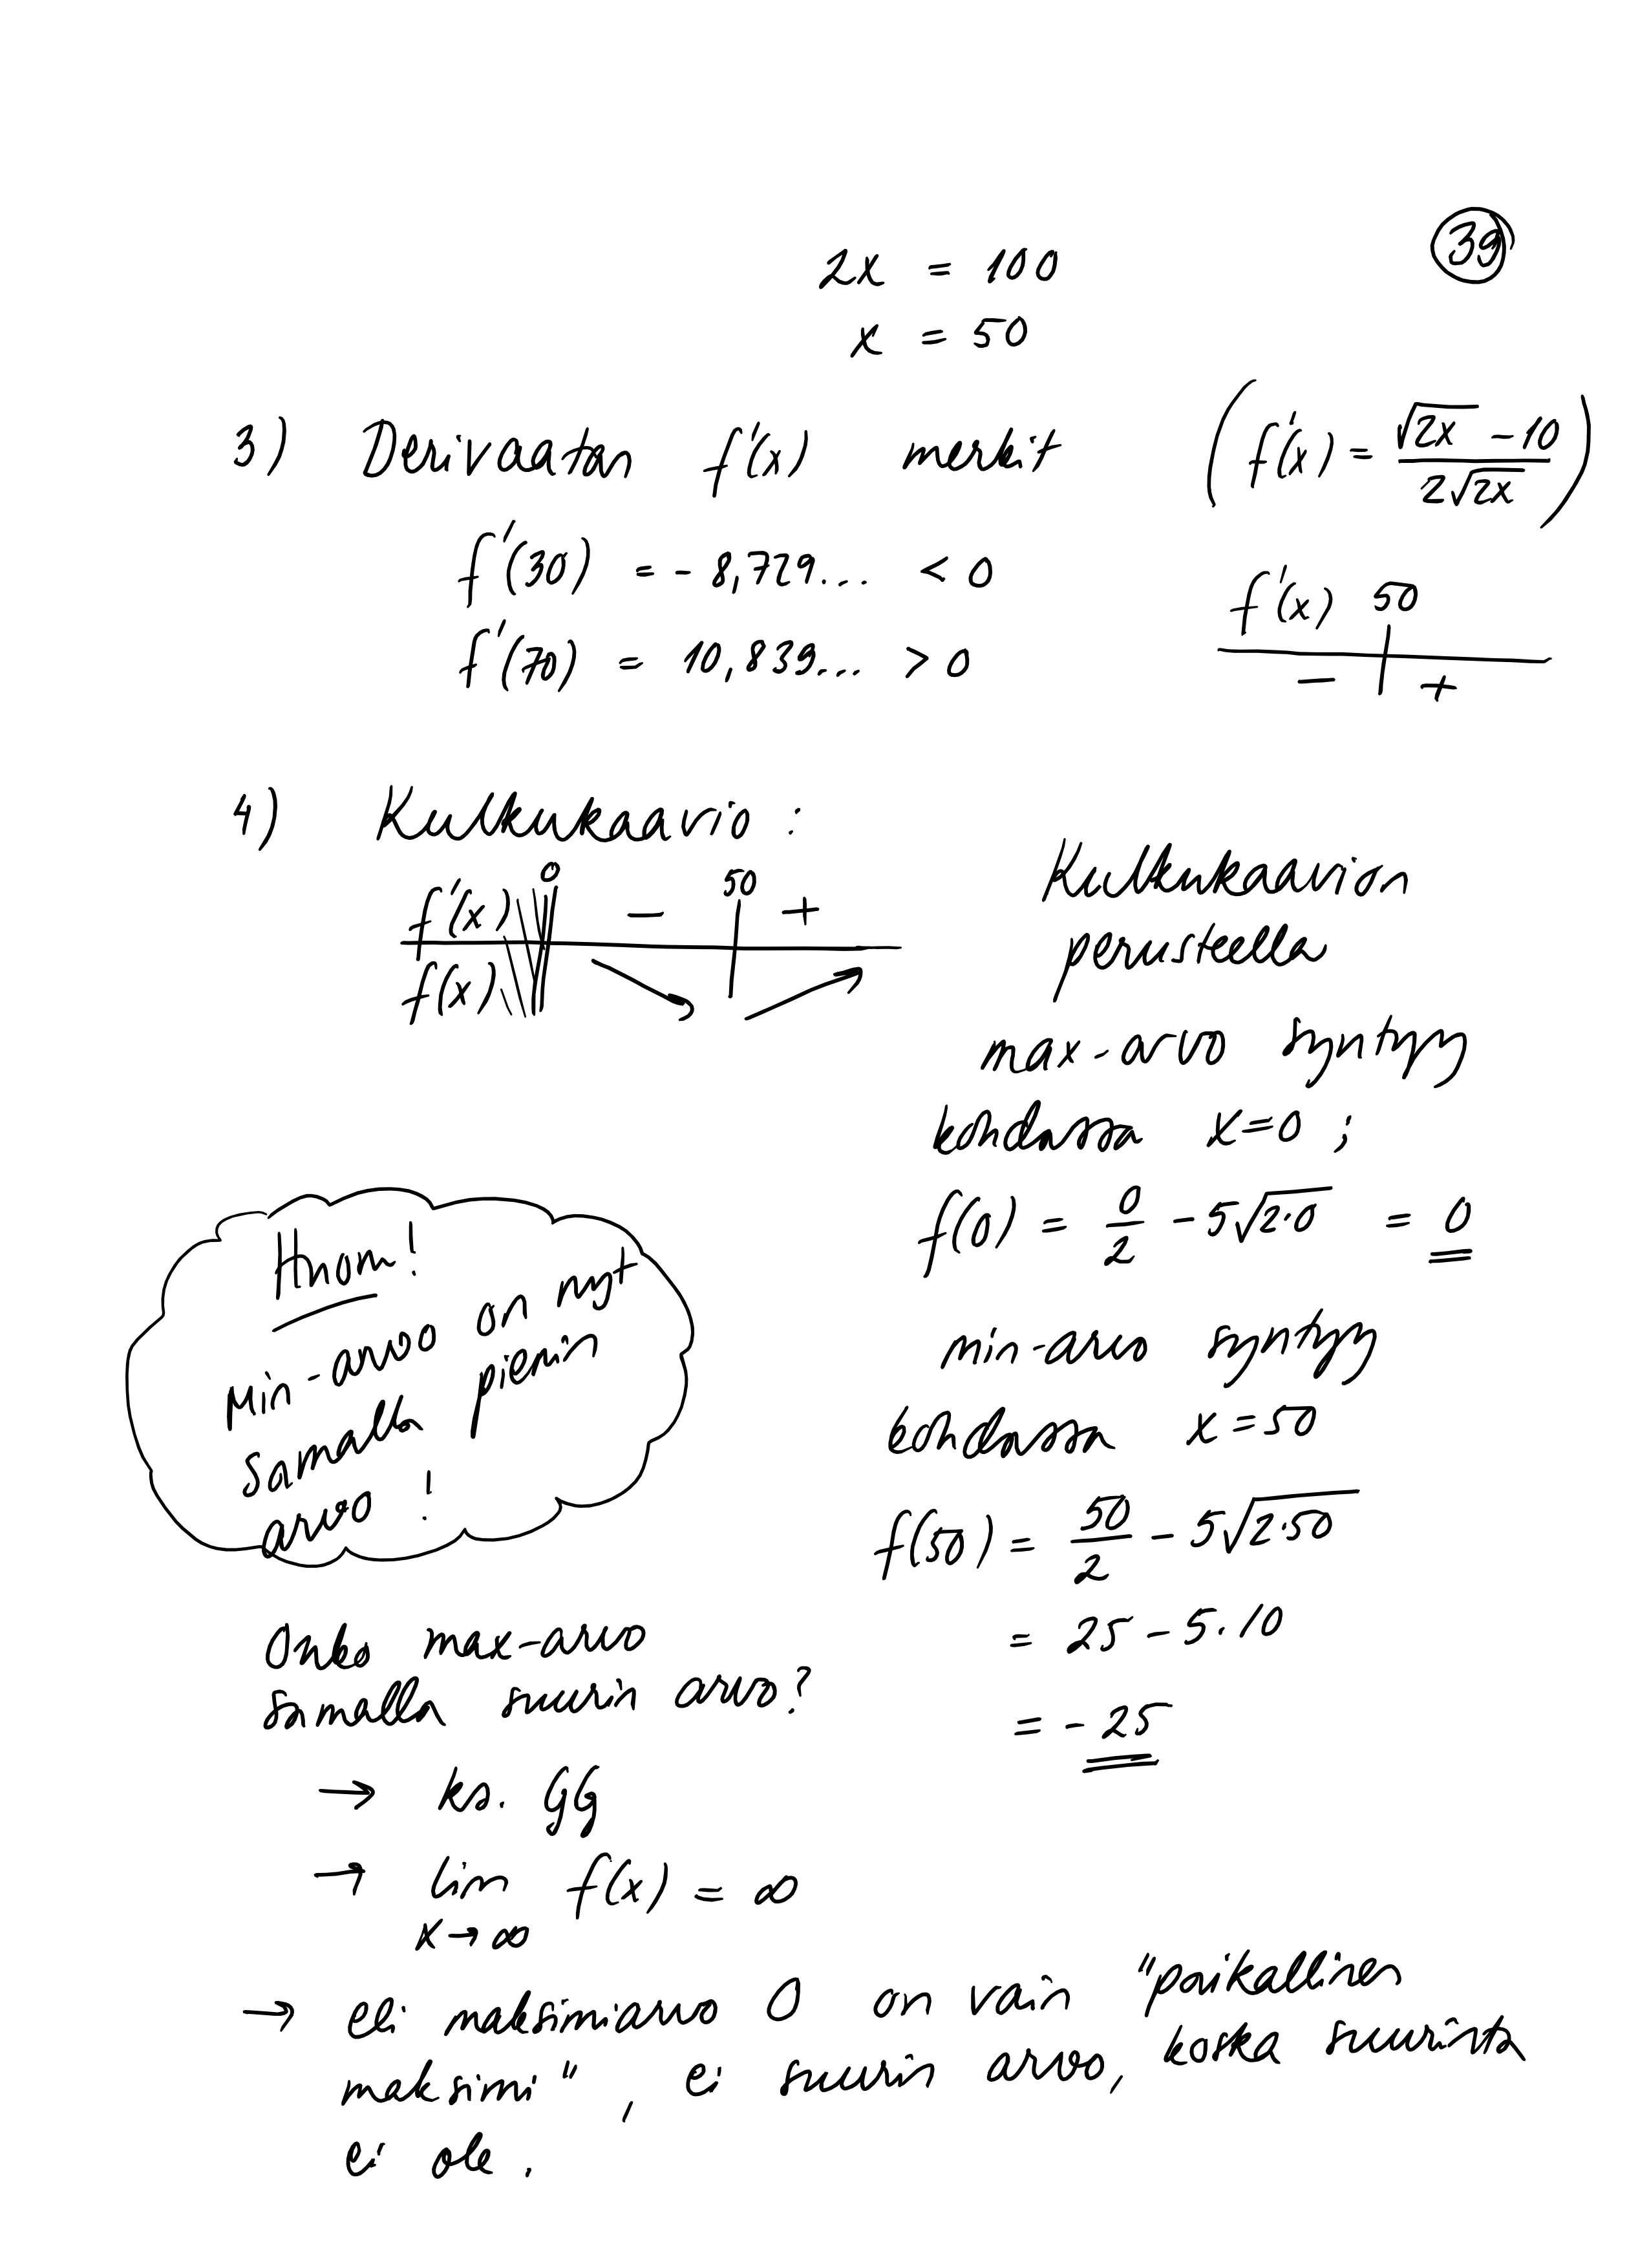 39
2x = 100
x = 50
3) Derivaatan f'(x) merkit (f'(x) = (√2x - 10)/(2√2x))
f'(30) = - 8,729... < 0
f'(70) = 10,839... > 0
f'(x) 50
- +
4) Kulkukaavio :
0 50
f'(x) - +
f(x)
Kulkukaavion
perusteella
max-arvo syntyy
kohdassa x=0 ;
f(0) = 0/2 - 5√2·0 = 0
min-arvo syntyy
kohdassa x=50
f(50) = 50/2 - 5√2·50
= 25 - 5·10
= - 25
Huom!
Min-arvo on nyt
samalla pienin
arvo !
Onko max-arvo
samalla suurin arvo?
→ ks. GG
→ lim f(x) = ∞
x→∞
→ eli maksimiarvo 0 on vain "paikallinen
maksimi", ei suurin arvo, koska suurinta
ei ole.